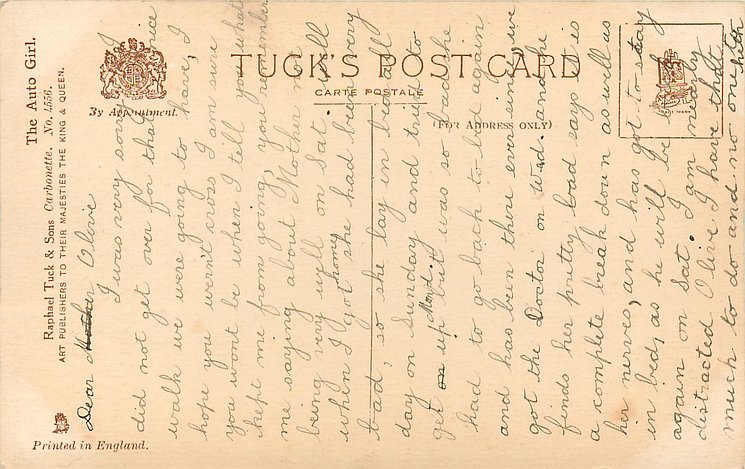 The Auto Girl.
Raphael Tuck & Sons Carbonette. No. 4556.
ART PUBLISHERS TO THEIR MAJESTIES THE KING & QUEEN.
By Appointment.
TUCK'S POST CARD
CARTE POSTALE
(FOR ADDRESS ONLY)
Printed in England.
Dear Mother Olive
I was very sorry I
did not get over for that nice
walk we were going to have, I
hope you weren't cross I am sure
you wont be when I tell you what
kept me from going, you remember
me saying about Mother not
being very well on Sat. well
when I got home she had been very
bad, so she lay in bed all
day on Sunday and tried to
get on up Mond. but was so bad she
had to go back to bed again
and has been there ever since, we
got the Doctor on Wed. and he
finds her pretty bad says it is
a complete break down as well as
her nerves, and has got to stay
in bed, as he will be up
again on Sat. I am nearly
distracted Olive I have that
much to do and no one to
help